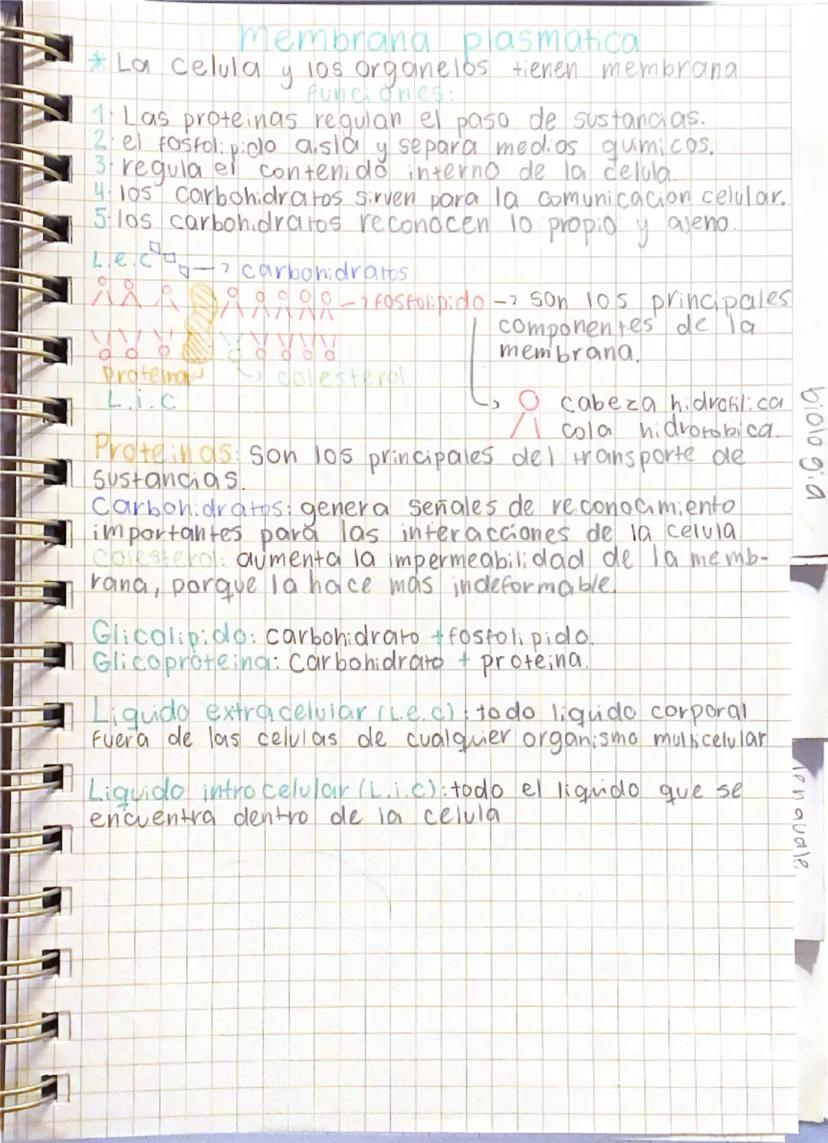 membrana plasmatica
* La celula y los organelos tienen membrana
funciones:
1. Las proteinas regulan el paso de sustancias.
2. el fosfolipido aisla y separa medios quimicos.
3. regula el contenido interno de la celula.
4. los carbohidratos sirven para la comunicacion celular.
5. los carbohidratos reconocen lo propio y ajeno.
L.e.c → carbohidratos
→ fosfolipido → son los principales
componentes de la
membrana.
proteina → colesterol
L.i.c
cabeza hidrofilica
cola hidrofobica.
Proteinas: son los principales del transporte de
sustancias.
Carbohidratos: genera señales de reconocimiento
importantes para las interacciones de la celula
Colesterol: aumenta la impermeabilidad de la memb-
rana, porque la hace mas indeformable.
Glicolipido: carbohidrato + fosfolipido.
Glicoproteina: carbohidrato + proteina.
Liquido extracelular (L.e.c): todo liquido corporal
fuera de las celulas de cualquier organismo multicelular
Liquido introcelular (L.i.c): todo el liquido que se
encuentra dentro de la celula
biologia
lenguaje.